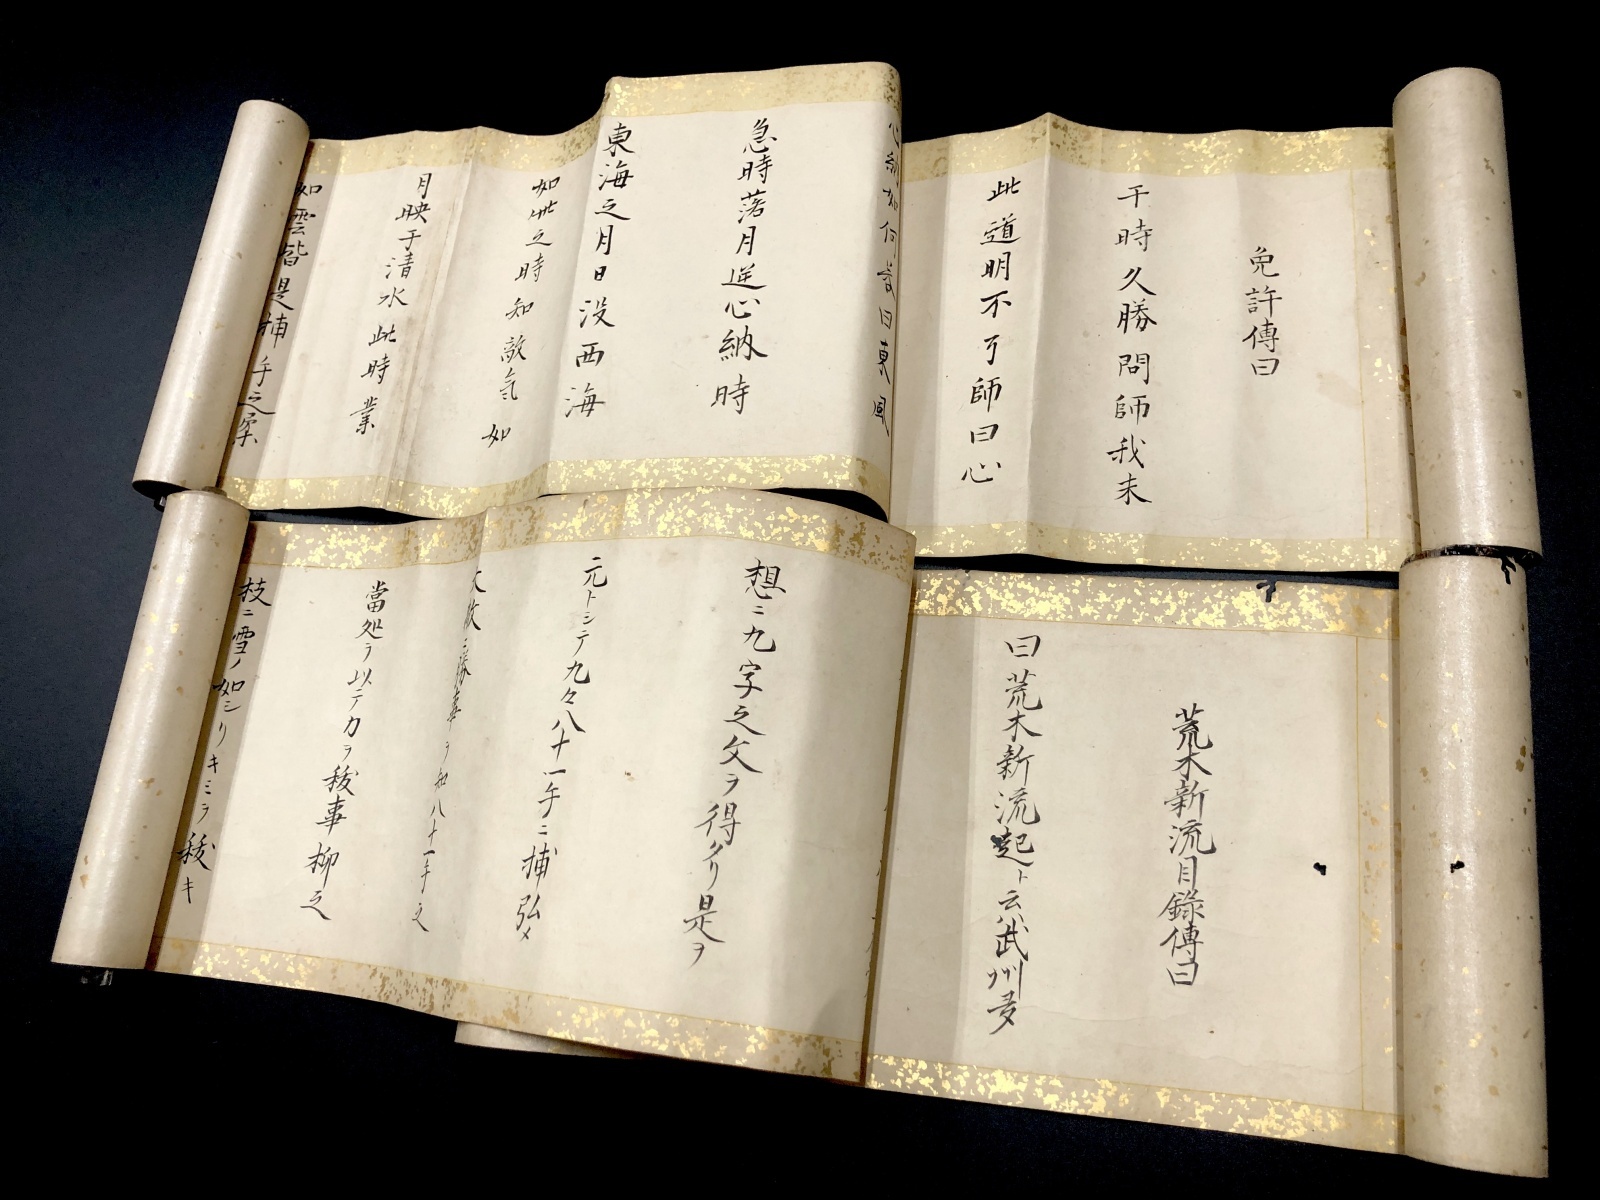 免許傳曰
干時久勝問師我未
此道明不了師曰心
心納如何答曰東風
急時落月逆心納時
東海之月日没西海
如此之時知敵氣如
月映于清水此時業
如雲皆是捕手之
荒木新流目録傳曰
曰荒木新流起ト云武州
想ニ九字之文ヲ得タリ是ヲ
元トシテ九々八十一手ニ捕弘メ
勝事ヲ知八十一手之
當処ヲ以テカヲ事柳之
枝ニ雪ノ如シリキミヲ